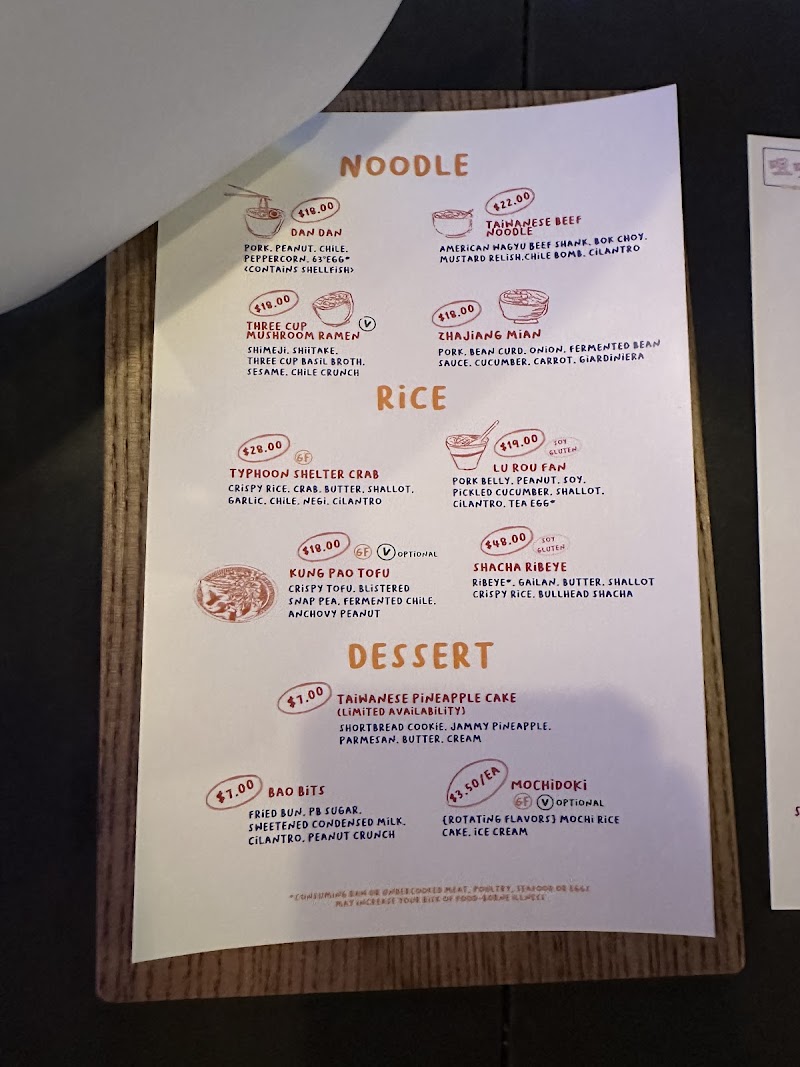 NOODLE
$18.00
DAN DAN
PORK, PEANUT, CHILE,
PEPPERCORN, 63°EGG*
(CONTAINS SHELLFISH)
$22.00
TAIWANESE BEEF
NOODLE
AMERICAN WAGYU BEEF SHANK, BOK CHOY,
MUSTARD RELISH, CHILE BOMB, CILANTRO
$18.00
THREE CUP
MUSHROOM RAMEN V
SHIMEJI, SHIITAKE,
THREE CUP BASIL BROTH,
SESAME, CHILE CRUNCH
$18.00
ZHAJIANG MIAN
PORK, BEAN CURD, ONION, FERMENTED BEAN
SAUCE, CUCUMBER, CARROT, GIARDINIERA
RICE
$28.00 GF
TYPHOON SHELTER CRAB
CRISPY RICE, CRAB, BUTTER, SHALLOT,
GARLIC, CHILE, NEGI, CILANTRO
$19.00 SOY
GLUTEN
LU ROU FAN
PORK BELLY, PEANUT, SOY,
PICKLED CUCUMBER, SHALLOT,
CILANTRO, TEA EGG*
$18.00 GF V OPTIONAL
KUNG PAO TOFU
CRISPY TOFU, BLISTERED
SNAP PEA, FERMENTED CHILE,
ANCHOVY PEANUT
$48.00 SOY
GLUTEN
SHACHA RIBEYE
RIBEYE*, GAILAN, BUTTER, SHALLOT
CRISPY RICE, BULLHEAD SHACHA
DESSERT
$7.00 TAIWANESE PINEAPPLE CAKE
(LIMITED AVAILABILITY)
SHORTBREAD COOKIE, JAMMY PINEAPPLE,
PARMESAN, BUTTER, CREAM
$7.00 BAO BITS
FRIED BUN, PB SUGAR,
SWEETENED CONDENSED MILK,
CILANTRO, PEANUT CRUNCH
$3.50/EA MOCHIDOKI
GF V OPTIONAL
{ROTATING FLAVORS} MOCHI RICE
CAKE, ICE CREAM
*CONSUMING RAW OR UNDERCOOKED MEAT, POULTRY, SEAFOOD OR EGGS
MAY INCREASE YOUR RISK OF FOOD-BORNE ILLNESS